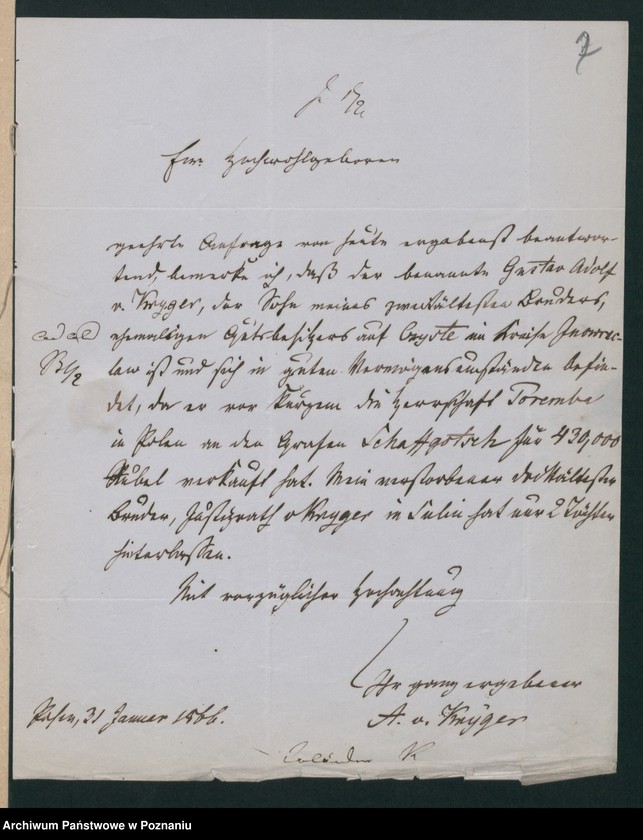 7
1/2
Ew. Hochwohlgeboren
geehrte Anfrage von heute ergebenst beantwor-
tend, bemerke ich, daß der benannte Gustav Adolf
v. Kryger, der Sohn meines zweitältesten Bruders,
ehemaligen Gutsbesitzers auf im Kreise Inowrac-
law ist und sich in guten Vermögensumständen befin-
det, da er vor Kurzem die Herrschaft Poremba
in Polen an den Grafen Schaffgotsch für 430,000
Rubel verkauft hat. Mein verstorbener drittältester
Bruder, Justizrath v Kryger in hat nur 2 Töchter
hinterlassen.
Mit vorzüglicher Hochachtung
Ihr ganz ergebener
Posen, 31 Januar 1866.
A. v. Kryger
ad acta
Archiwum Państwowe w Poznaniu